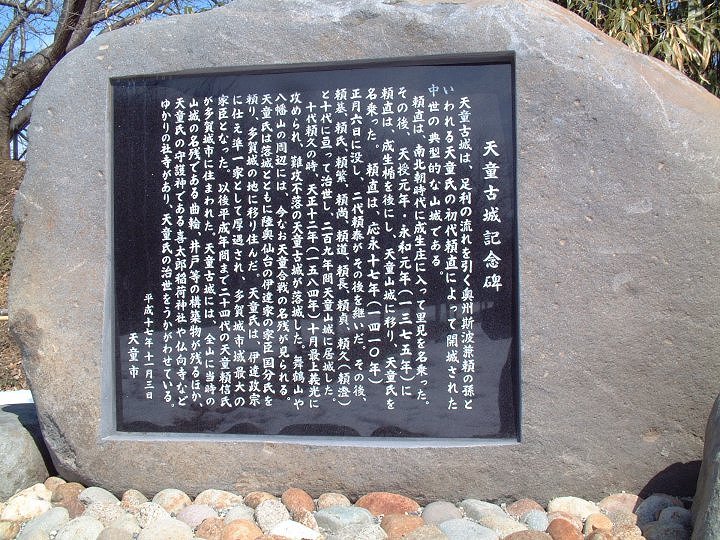 天童古城 記念碑
天童古城は、足利の流れを引く奥州斯波兼頼の孫と
いわれる天童氏の初代頼直によって開城された
中世の典型的な山城である。
頼直は、南北朝時代に成生庄に入って里見を名乗った。
その後、天授元年・永和元年（一三七五年）に
頼直は、成生楯を後にし、天童山城に移り、天童氏を
名乗った。頼直は、応永十七年（一四一〇年）
正月六日に没し、二代頼泰がその後を継いだ。その後、
頼基、頼氏、頼繁、頼尚、頼道、頼長、頼貞、頼久（頼澄）
と十代に亘って治世し、二百九年間天童山城に居城した。
十代頼久の時、天正十二年（一五八四年）十月最上義光に
攻められ、難攻不落の天童古城が落城した。舞鶴山や
八幡山の周辺には、今なお天童合戦の名残が見られる。
天童氏は落城とともに陸奥仙台の伊達家の家臣国分氏を
頼り、多賀城の地に移り住んだ。天童氏は、伊達政宗
に仕え準一家として厚遇され、多賀城市城最大の
家臣となった。以後平成年間まで二十四代の天童頼信氏
が多賀城市に住まわれた。天童古城には、全山に当時の
山城の名残である曲輪、井戸等の構築物が残るほか、
天童氏の守護神である喜太郎稲荷神社や仏向寺など
ゆかりの社寺があり、天童氏の治世をうかがわせている。
平成十七年十一月三日
天童市